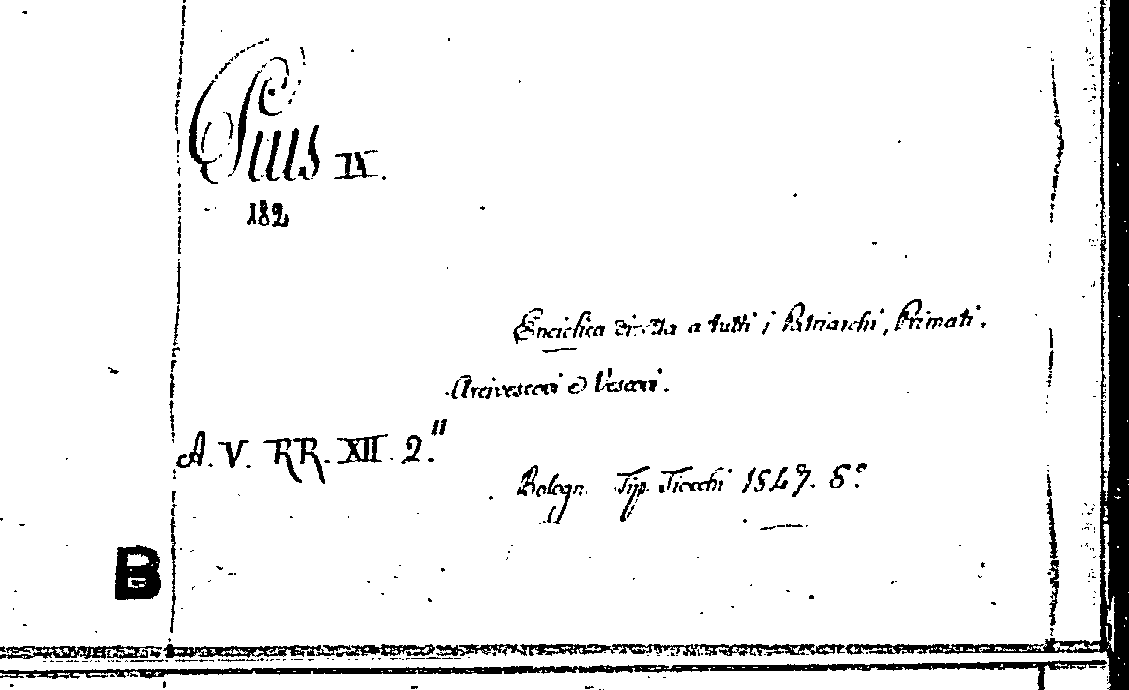 Pius IX.
182
Enciclica diretta a tutti i Patriarchi, Primati.
Arcivescovi e Vescovi.
A. V. RR. XII. 2."
Bologn. Tip. Tiocchi 1847. 8°.
B